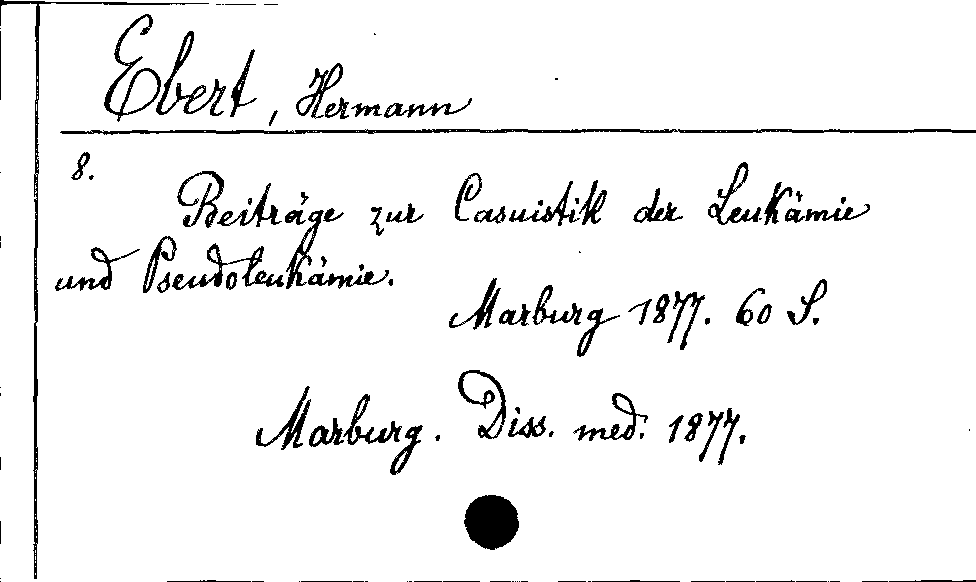 Ebert, Hermann
8.
Beiträge zur Casuistik der Leukämie
und Pseudoleukämie.
Marburg 1877. 60 S.
Marburg. Diss. med. 1877.